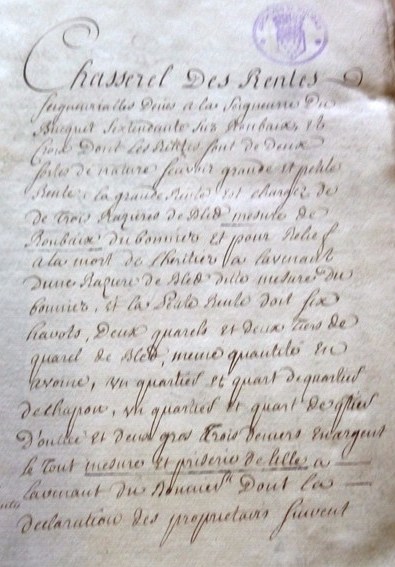 Chasserel Des Rentes
Seigneurialles Deües a la Seigneurie Du
Bucquet Sextendante Sur Roubaix, et
Croix Dont Les Rentes sont de deux
sortes de nature scavoir grande et petite
Rente, la grande Rente est chargée de
de Trois Razieres de Bled mesure de
Roubaix du bonnier et pour Relief
a la mort de Lheritier a lavenant
Dune Raziere de Bled ditte mesure du
bonnier, et la Petite Rente doit six
havots, Deux quarels et deux tiers de
quarel de Bled, meme quantité en
avoine, un quartier et quart de quartier
de chapon, un quartier et quart de
D'ouïe et deux gros Trois deniers en argent
le Tout mesure et priserie de Lille a
lavenant du Bonnier Dont La
Declaration des proprietairs suivent